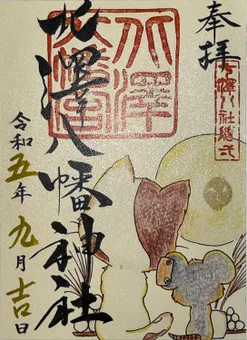 奉拝
北澤八幡神社
令和五年九月吉日
北澤